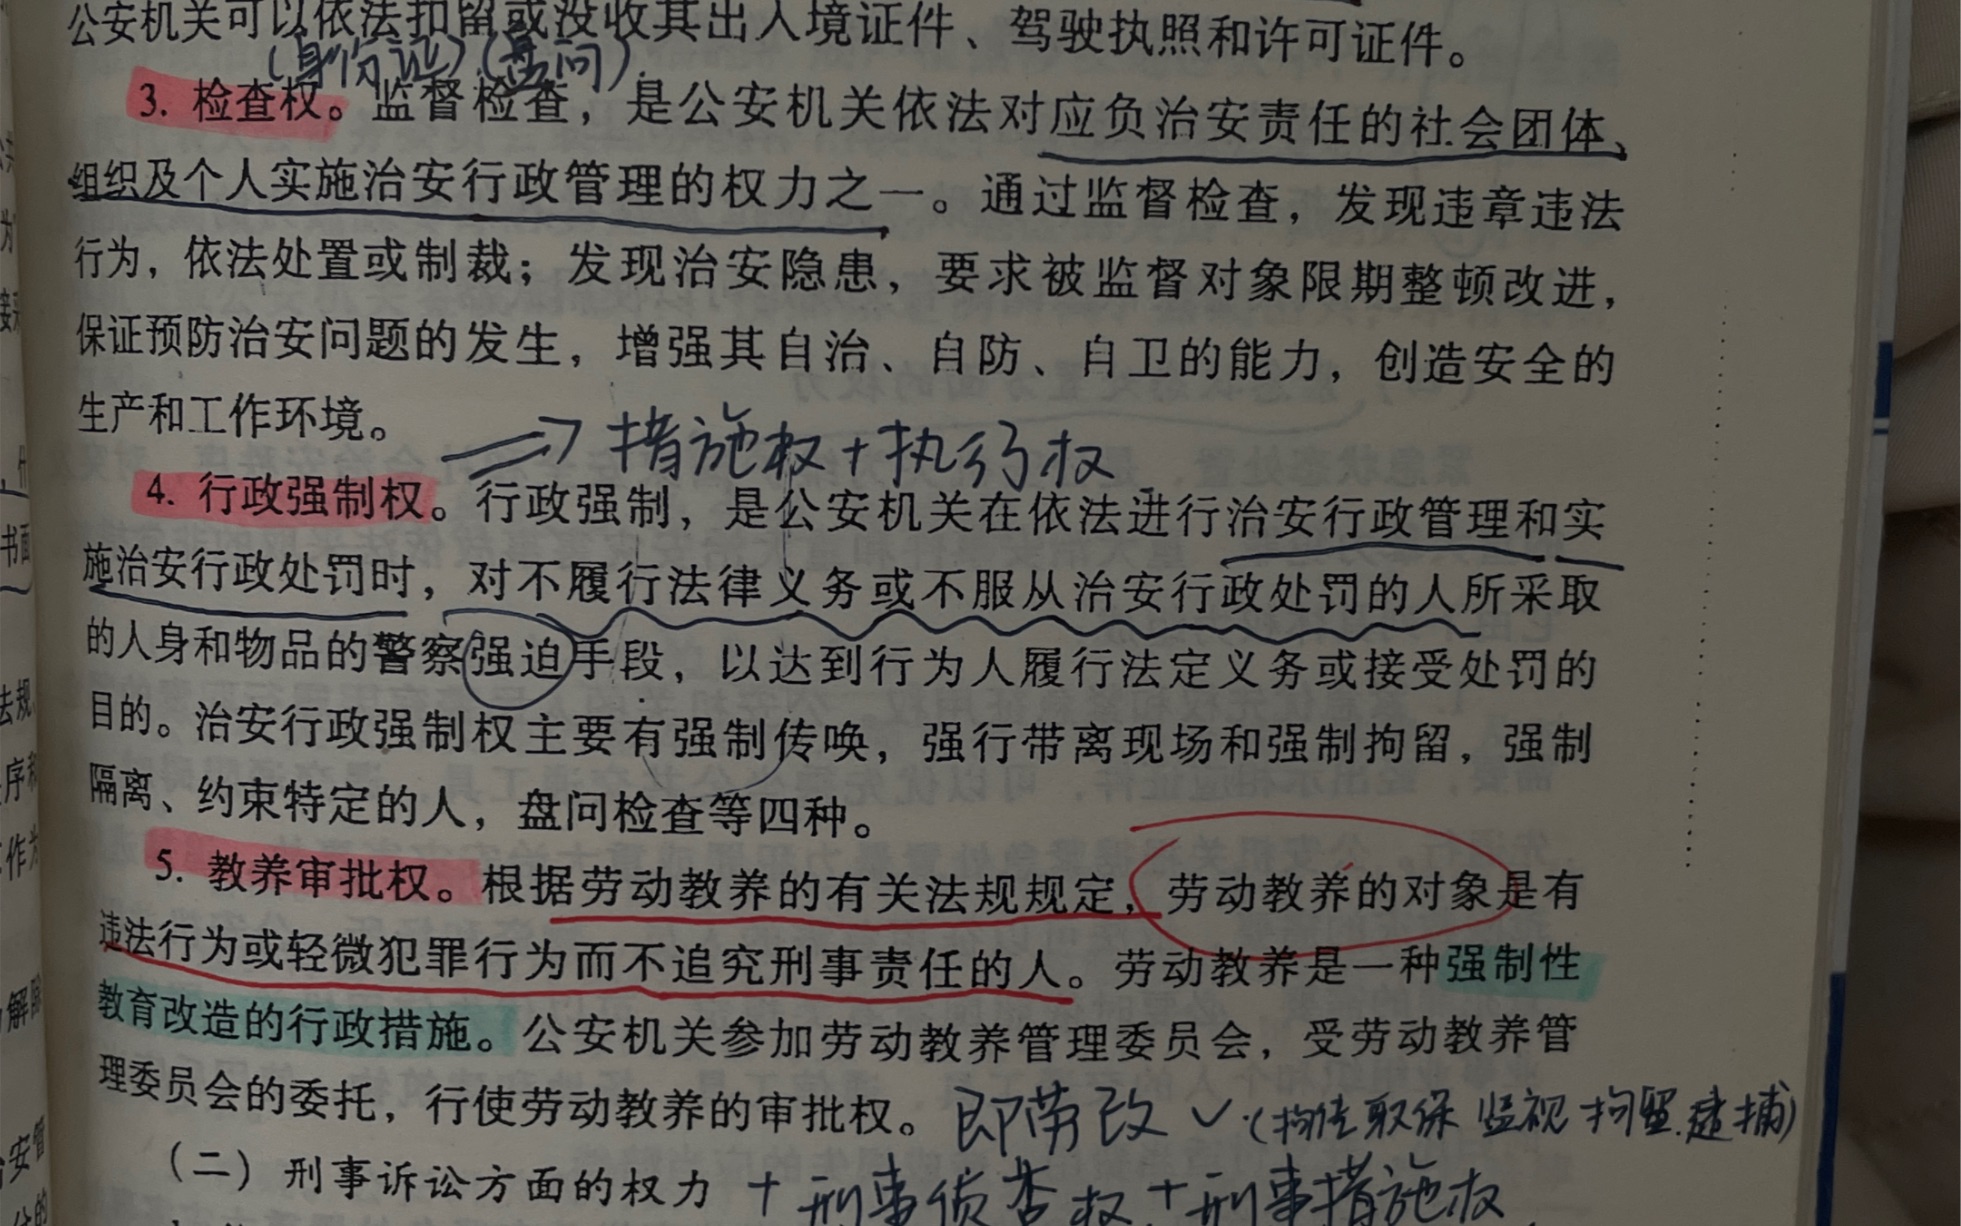 公安机关可以依法扣留或没收其出入境证件、驾驶执照和许可证件。
(身份证)(盘问)
3. 检查权。监督检查，是公安机关依法对应负治安责任的社会团体、
组织及个人实施治安行政管理的权力之一。通过监督检查，发现违章违法
行为，依法处置或制裁；发现治安隐患，要求被监督对象限期整顿改进，
保证预防治安问题的发生，增强其自治、自防、自卫的能力，创造安全的
生产和工作环境。
⇒ 措施权+执行权
4. 行政强制权。行政强制，是公安机关在依法进行治安行政管理和实
施治安行政处罚时，对不履行法律义务或不服从治安行政处罚的人所采取
的人身和物品的警察强迫手段，以达到行为人履行法定义务或接受处罚的
目的。治安行政强制权主要有强制传唤，强行带离现场和强制拘留，强制
隔离、约束特定的人，盘问检查等四种。
5. 教养审批权。根据劳动教养的有关法规规定，劳动教养的对象是有
违法行为或轻微犯罪行为而不追究刑事责任的人。劳动教养是一种强制性
教育改造的行政措施。公安机关参加劳动教养管理委员会，受劳动教养管
理委员会的委托，行使劳动教养的审批权。
即劳改 ✓ (拘传 取保 监视 拘留 逮捕)
（二）刑事诉讼方面的权力
+刑事侦查权+刑事措施权